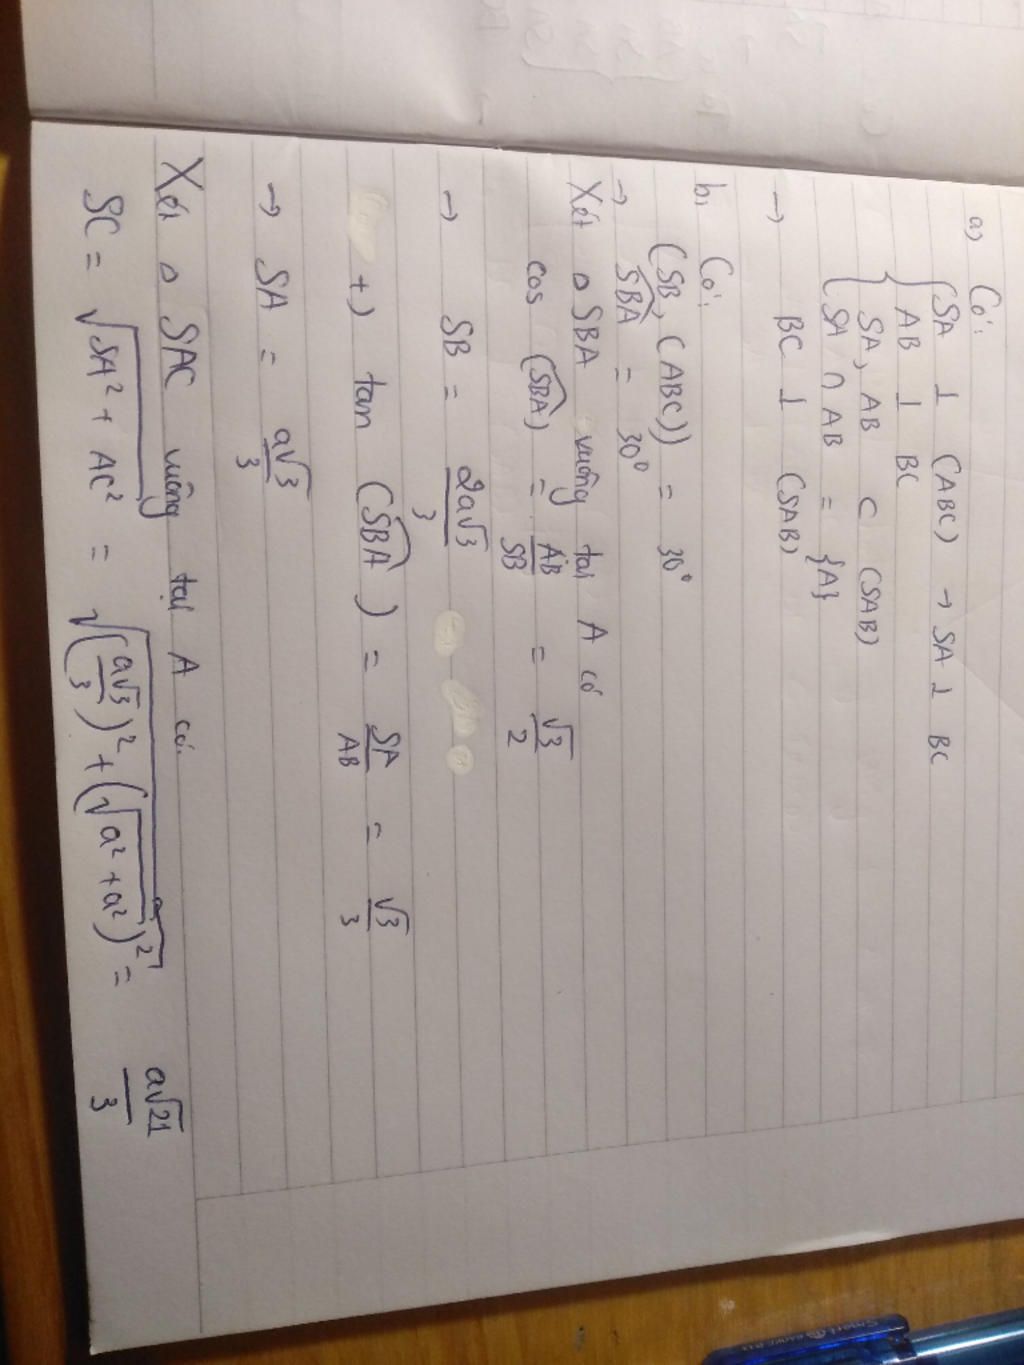 a) Có:
SA ⊥ (ABC) → SA ⊥ BC
AB ⊥ BC
SA, AB ⊂ (SAB)
SA ∩ AB = {A}
→ BC ⊥ (SAB)
b, Có:
(SB, (ABC)) = 30°
→ SBA = 30°
Xét Δ SBA vuông tại A có
cos (SBA) = AB/SB = √3/2
→ SB = 2a√3/3
+) tan (SBA) = SA/AB = √3/3
→ SA = a√3/3
Xét Δ SAC vuông tại A có:
SC = √(SA² + AC²) = √((a√3/3)² + (√(a² + a²))²) = a√21/3